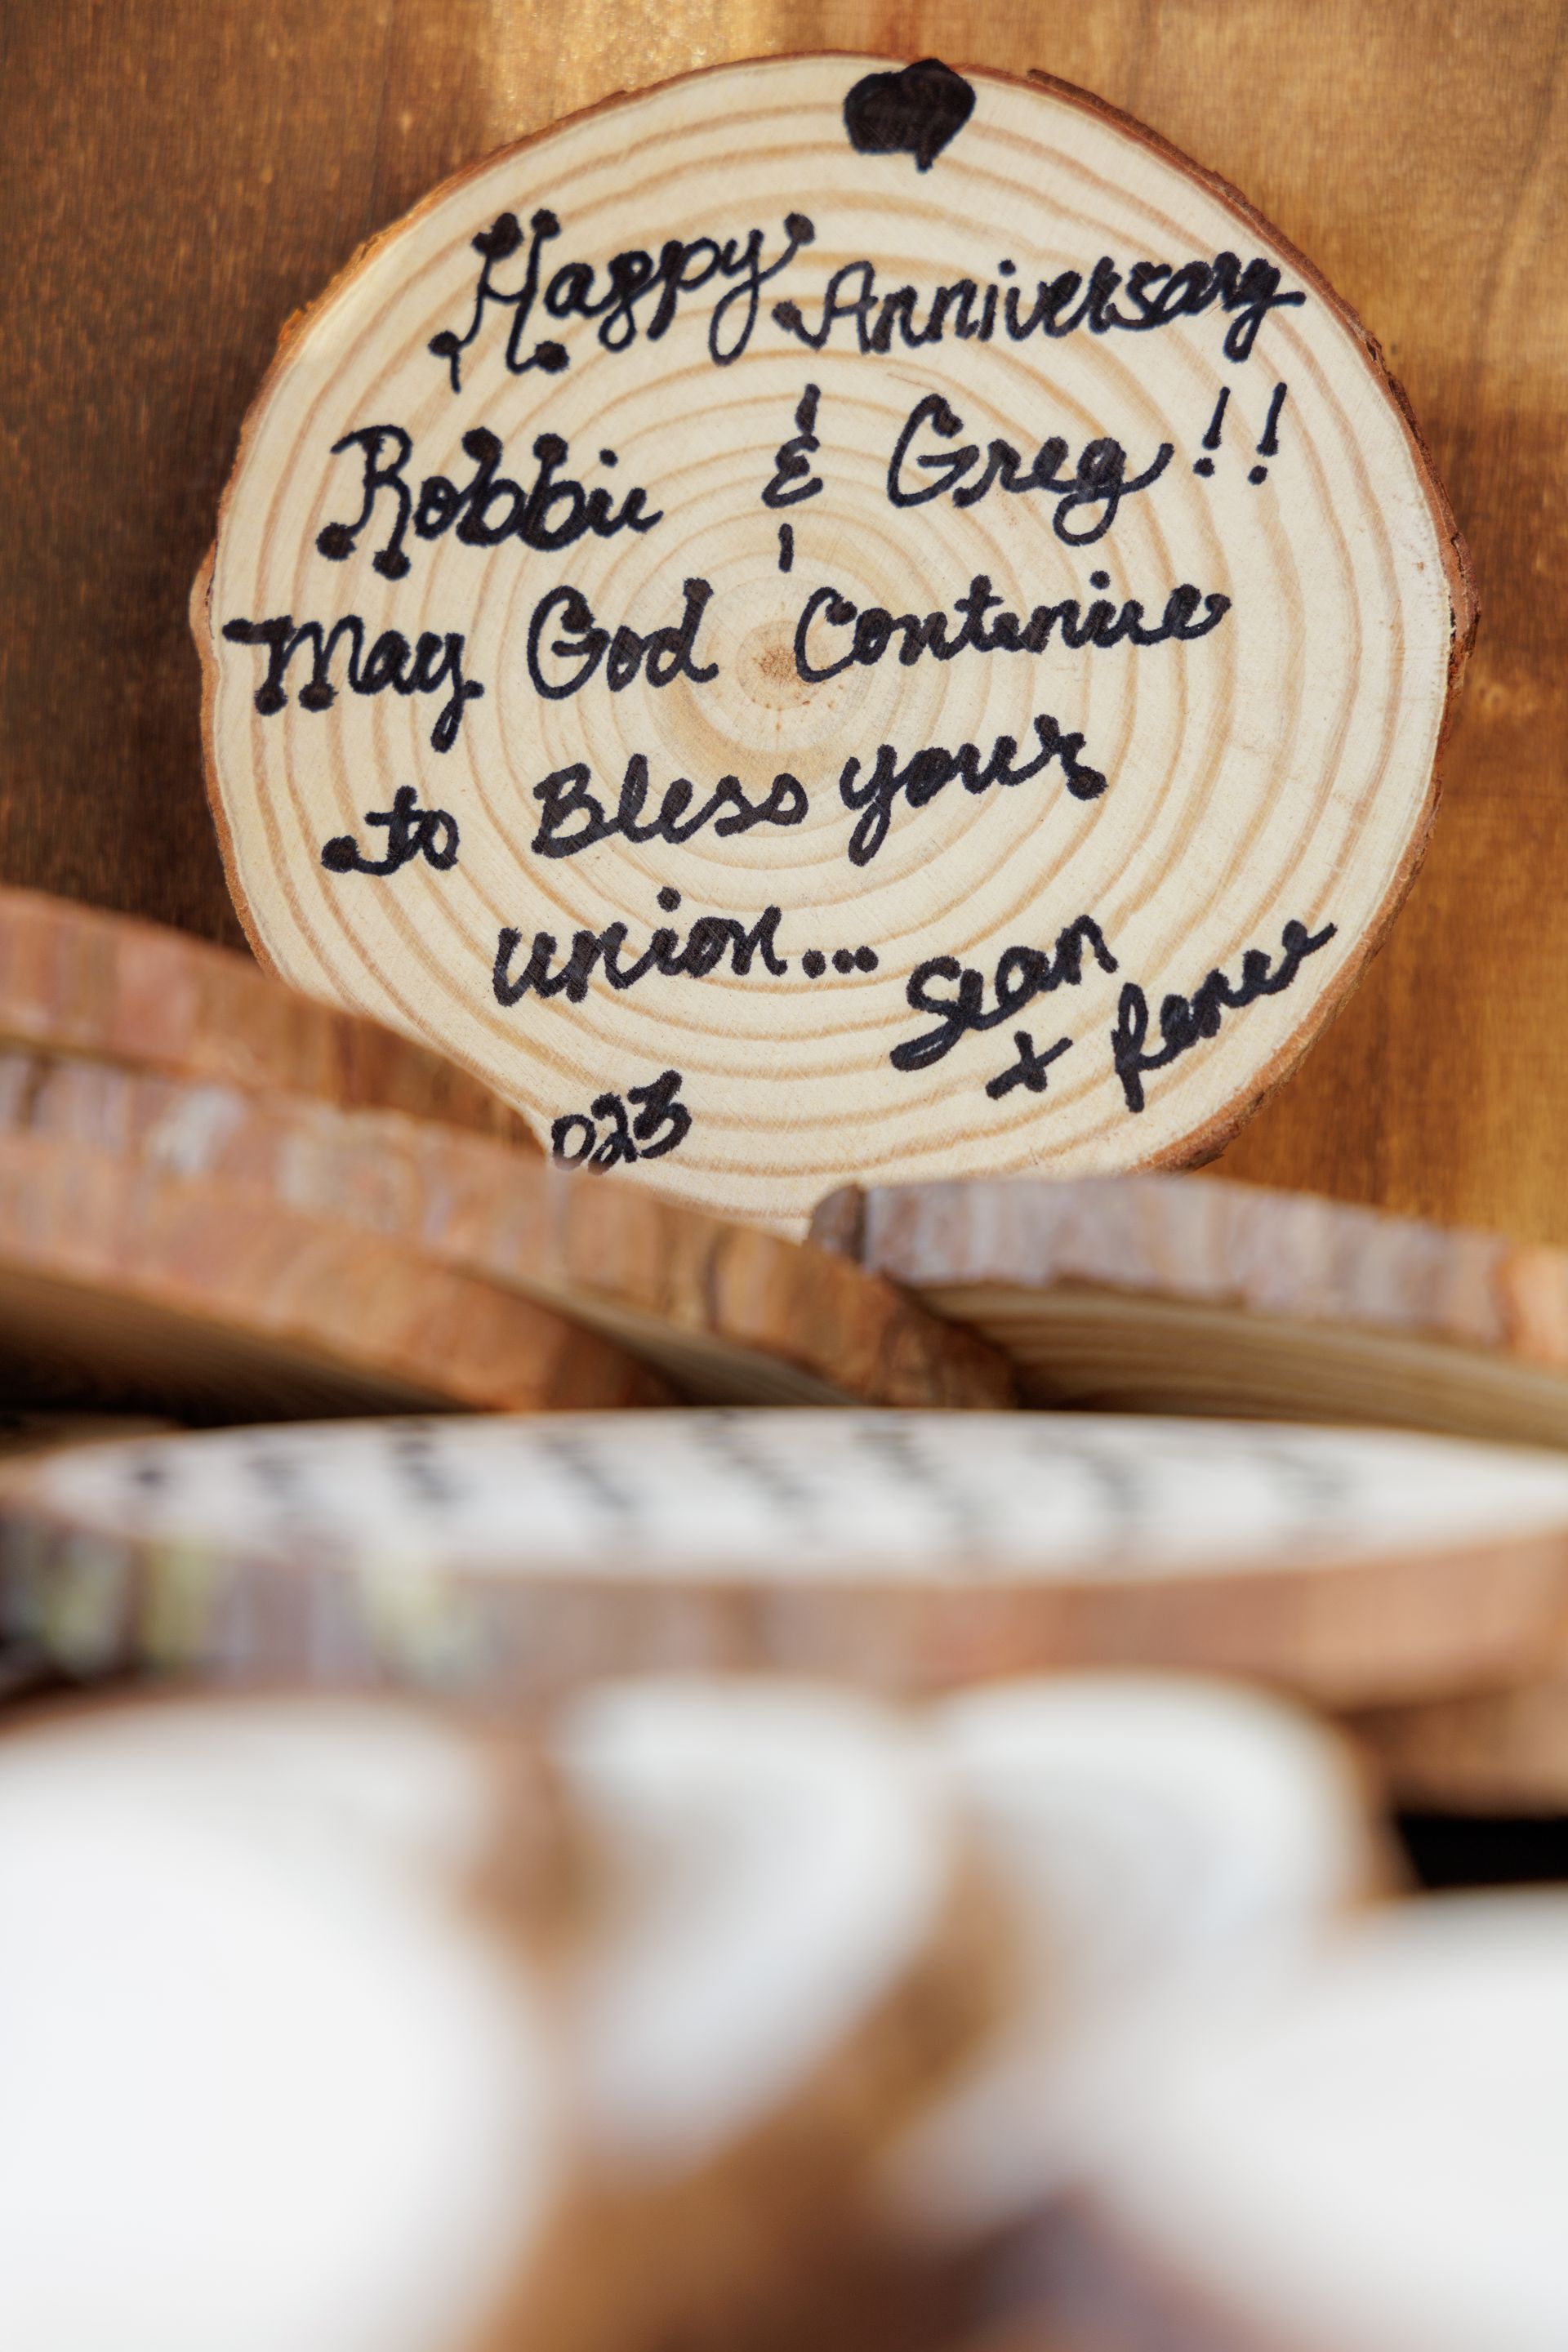 Happy Anniversary
Robbie & Greg!!
May God Continue
to Bless your
union...
Sean
+ Renee
023